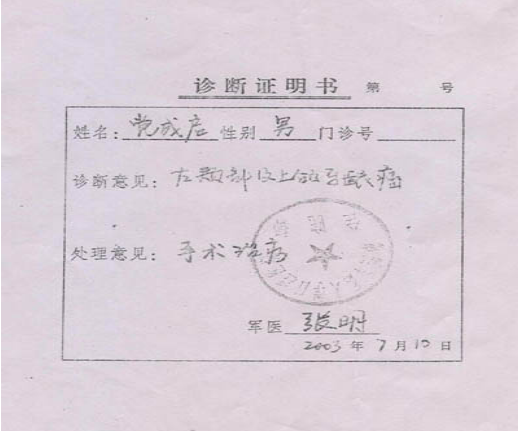 诊断证明书 第 号
姓名：党成启 性别 男 门诊号
诊断意见：左颞部及上
处理意见：手术治疗
军医 张明
2003年7月10日